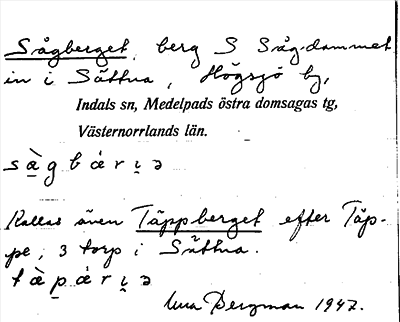 Sågberget, berg S Sågdammet
in i Sättna, Högsjö by,
Indals sn, Medelpads östra domsagas tg,
Västernorrlands län.
sằg bár i̯ ə
Kallas även Täppberget efter Täp-
pe, 3 torp i Sättna.
tằpár i̯ ə
Bergman 1947.